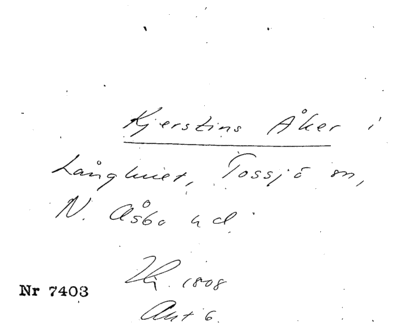 Kjerstins Åker i
Långhult, Tossjö sn,
N. Åsbo hd.
1808
Nr 7403
Akt 6.